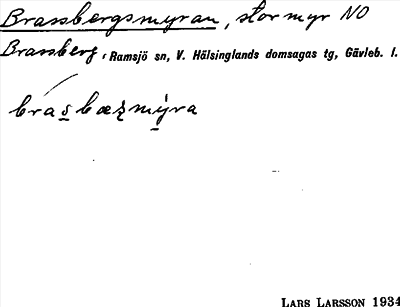 Brassbergsmyran, stor myr NO
Brassberg, Ramsjö sn, V. Hälsinglands domsagas tg, Gävleb. l.
LARS LARSSON 1934